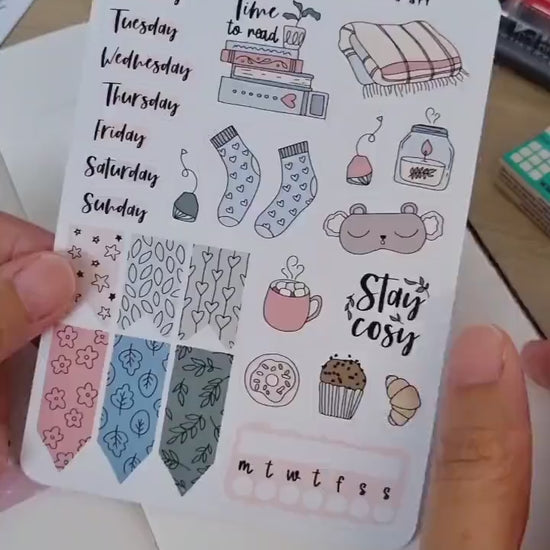 Tuesday
Wednesday
Thursday
Friday
Saturday
Sunday
Time
to read
Stay
cosy
m t w t f s s